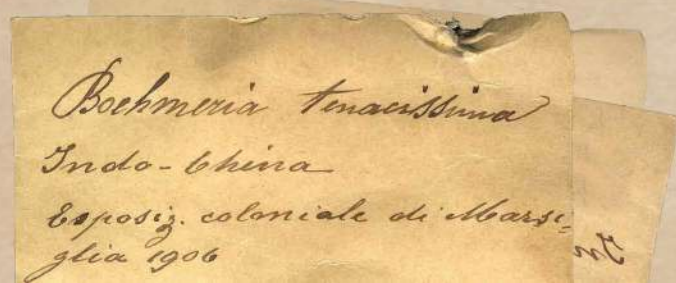 Boehmeria tenacissima
Indo-China
Esposiz. coloniale di Marsi-
glia 1906
In